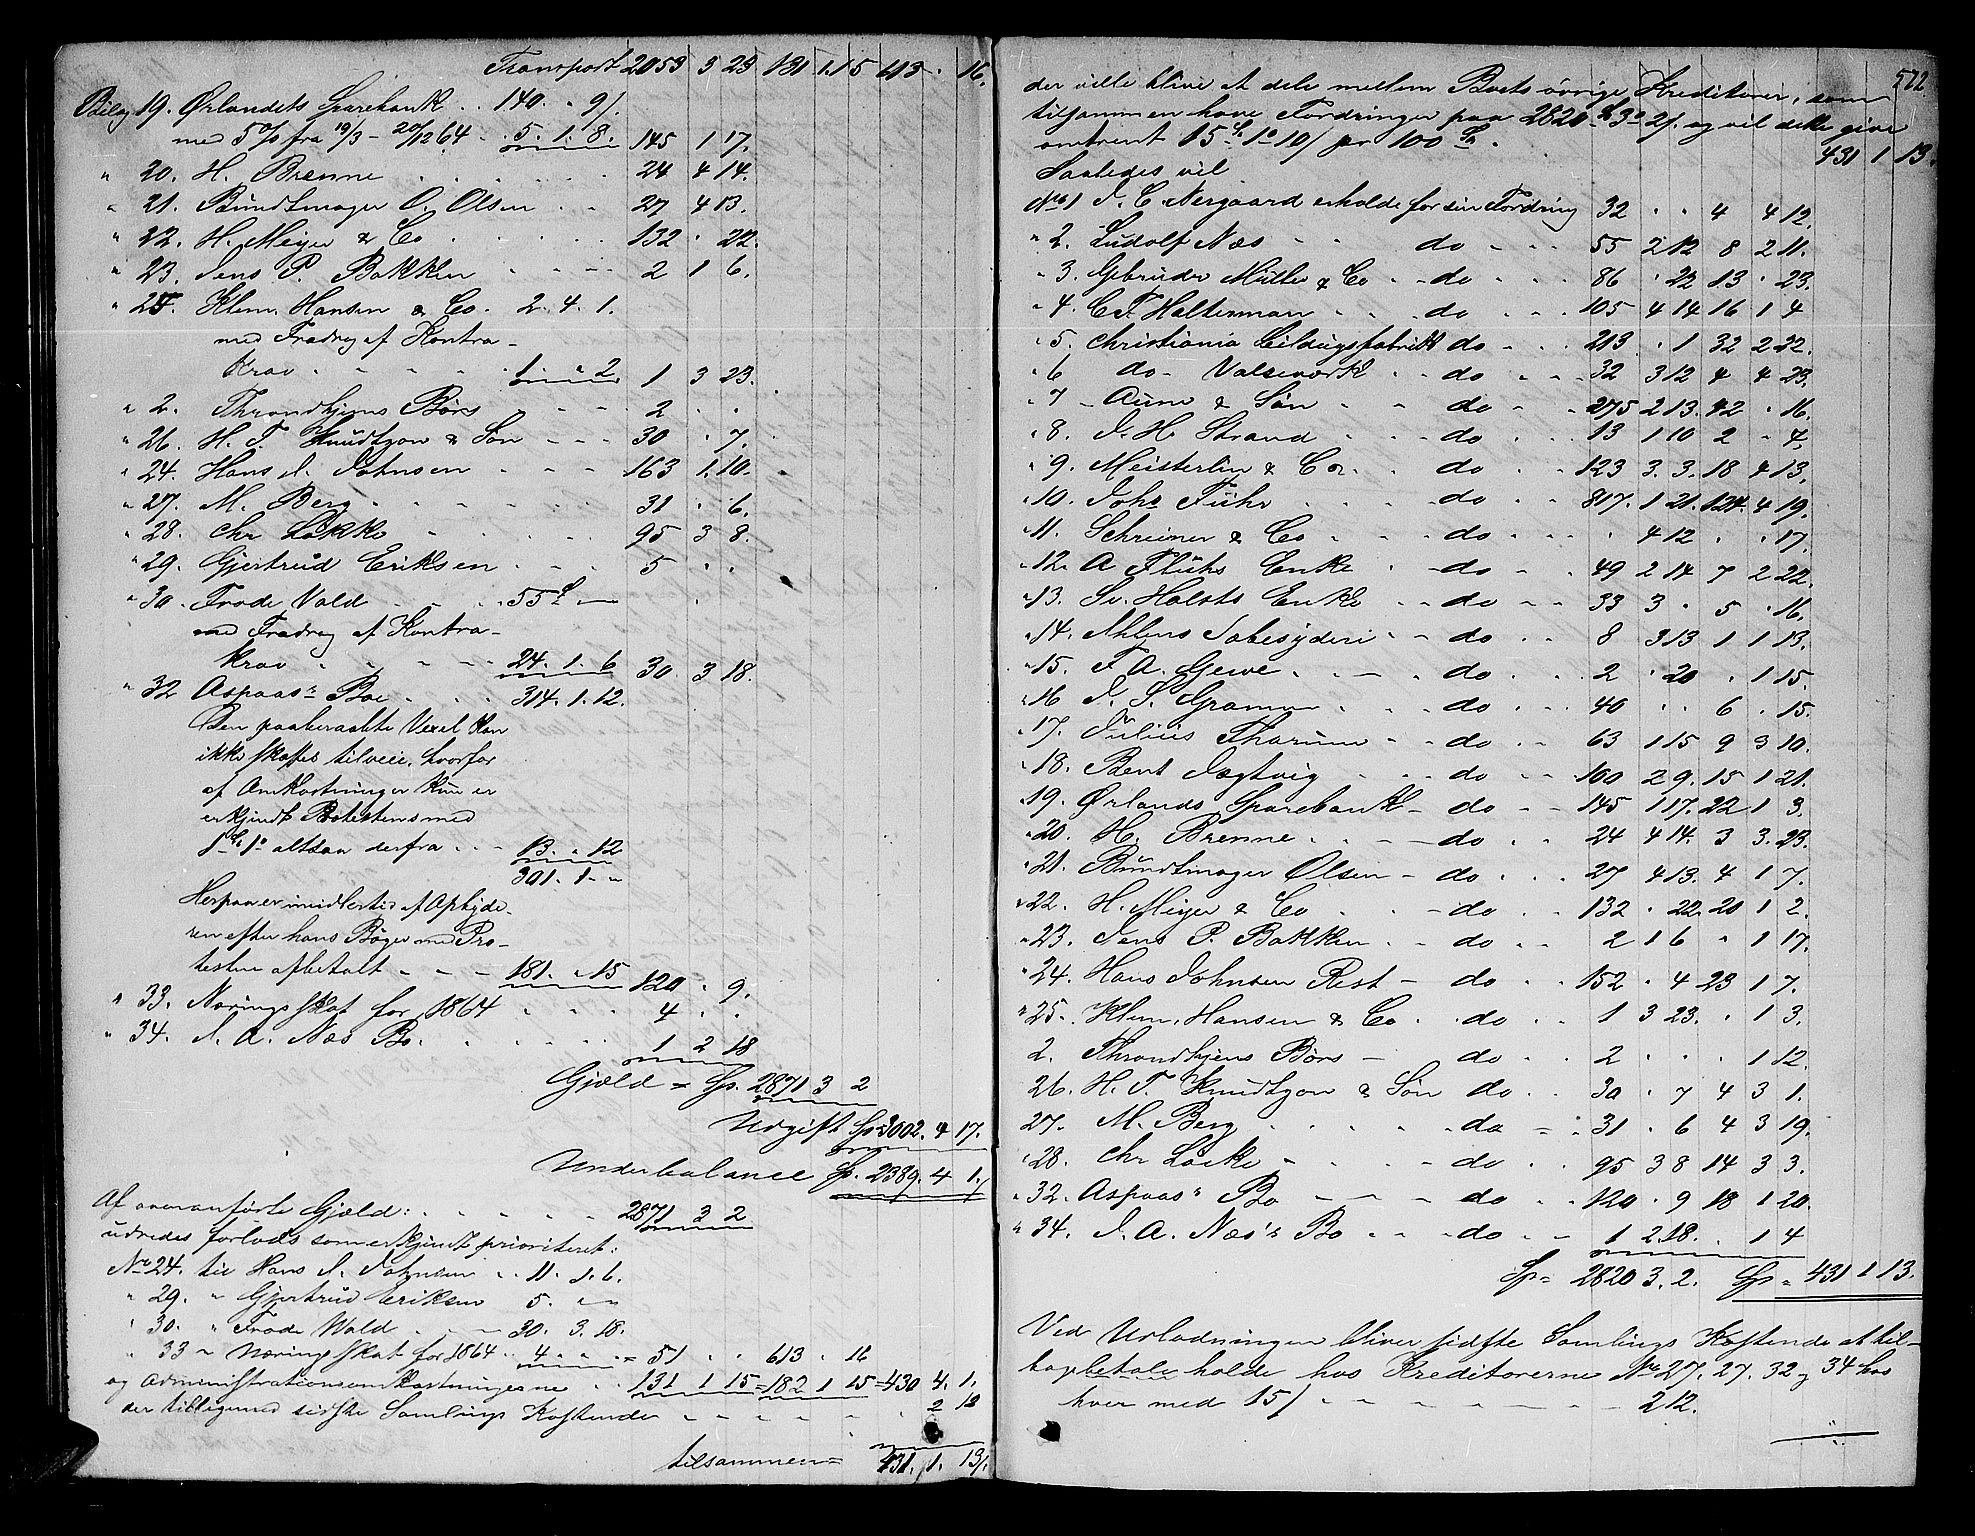 Transport 2053 3 23 131 1 15 613 . 16.
Bilag 19. Ørlandets Sparebank . . 140. . 9/
med 5 % fra 19/3 - 20/12 64 . 5. 1. 8. 145 1 17.
" 20. H. Brenne . . . 24 4 14.
" 21. Bundtmager O. Olsen . . 27 4 13.
" 22. H. Meyer & Co . . . 132 . 22.
" 23. Jens P. Bakken . . . 2 1 6.
" 25. Klem. Hansen & Co. 2. 4. 1.
med Fradrag af Kontra-
krav . . . 1 " 2 1 3 23.
" 2. Throndhjems Børs . . . 2 . .
" 26. H. T. Knudtzon & Søn . . . 30 . 7.
" 24. Hans J. Johnsen . . . 163 1. 10.
" 27. M. Berg . . . 31 . 6.
" 28. Chr Løkke . . . 95 3 8.
" 29. Gjertrud Eriksen . . . 5 . .
" 30. Frode Vald . . . 55 —
med Fradrag af Kontra-
krav . . . 24. 1. 6 30. 3 18.
" 32 Aspaas's Bo . . . 314. 1. 12.
Den paaberaabte Vexel kan
ikke skaffes tilveie, hvorfor
af Omkostninger kun er
erkjendt Protesten med
1 Sp 1 altsaa derfra . . . 13. . 12
301. 1. "
Herpaa er imidlertid af Afhyde-
ren efter hans Bøger med Pro-
testen afbetalt . . . 181. . 15 120 . 9.
" 33. Næringsskat for 1864 . . . 4 . .
" 34. J. A. Næs Bo. . . . 1 2 18
Gjæld = Sp. 2871 3 2
Udgift Sp 3002. 4 17.
Underbalance Sp. 2389. 4 1/
Af ovenanførte Gjæld: . . . 2871 3 2
udredes forlods som erkjendt prioriteret:
No 24. til Hans J. Johnsen . . 11. 1. 6.
" 29. " Gjertrud Eriksen 5. " "
" 30. " Frode Wald . . . 30. 3. 18.
" 33 " Næringsskat for 1864 . . 4 . . = 51 . . 613 . 16
og Administrationsomkostningerne . . 131 1 15 = 182 1 15 = 430 4. 1.
der tilligemed sidste Samlings Kostende . . . 2 12
tilsammen = 431. 1. 13/.
572
der ville blive at dele mellem Boets øvrige Kreditorer, som
tilsammen have Fordringer paa 2820 Sp 3 2/. og vil dette give
omtrent 15 Sp 1 10/ pr 100 Sp . 431 1 13.
Saaledes vil
No 1 J. C. Nergaard erholde for sin Fordring 32 . . 4 4 12.
" 2. Ludolf Næs . . do . . 55 2 12 8 2 11.
" 3. Gebruder Müller & Co . . do . . 86 . 22 13 . 23.
" 4. C. F. Halterman . . do . . 105 4 14 16 1 4
" 5. Christiania Seildugsfabrik do . . 213 . 1 32 2 22.
" 6 do - Valseværk . . do . . 32 3 12 4 4 23.
" 7 - Aune & Søn . . do . . 275 2 13. 42 . 16.
" 8. J. H. Strand . . do . . 13 1 10 2 . 4.
" 9. Meisterlin & Co . . do . . 123 3. 3. 18 4 13.
" 10. Johs Führ . . do . . 817. 1 21. 124. 4 19.
" 11. Schreiner & Co . . do . . . 4 12 . . 17.
" 12. A Flühs Enke . . do . . 49 2 14 7 2 22.
" 13. Sv. Holsts Enke . . do . . 33 3 . 5 . 16.
" 14. Ahlens Sæbesyderi . . do . . 8 3 13 1 1 13.
" 15. F. A. Gewe . . do . . 2 . 20 . 1 15.
" 16 J. S. Gramm . . do . . 40 . . 6 . 15.
" 17. Julius Tharum . . do . . 63 1 15 9 3 10.
" 18. Bent Jægtvig . . do . . 100 2 9. 15 1 21.
" 19. Ørlands Sparebank - do . . 145 1 17. 22 1 3.
" 20. H. Brenne . . do . . 24 4 14. 3 3. 23.
" 21. Bundtmager Olsen - do . . 27 4 13. 4 1 7.
" 22. H. Meyer & Co . . do . . 132 . 22. 20 1 2.
" 23. Jens P. Bakken . . do . . 2 1 6 . 1 17.
" 24. Hans Johnsen Rest - do . . 152 . 4 23 1 7.
" 25. Klem. Hansen & Co . . do . . 1 3 23. . 1 3.
2. Throndhjems Børs — do . . 2 . . . 1 12.
26. H. T. Knudtzon & Søn do . . 30 . 7 4 3 1.
27. M. Berg . . . do . . 31 . 6 4 3 19.
" 28. Chr Løcke . . . do . . 95 3 8 14 3 3.
" 32. Aspaas's Bo . . . do . . 120 . 9 18 1 20.
" 34. J. A. Næs's Bo . . do . . 1 2. 18. . 1 4
Sp = 2820 3. 2. Sp = 431 1 13.
Ved Udlodningen bliver sidste Samlings Kostende at til-
bagebetale holde hos Kreditorerne No 27. 27. 32 og 34 hos
hver med 15/ . . . 2 12.